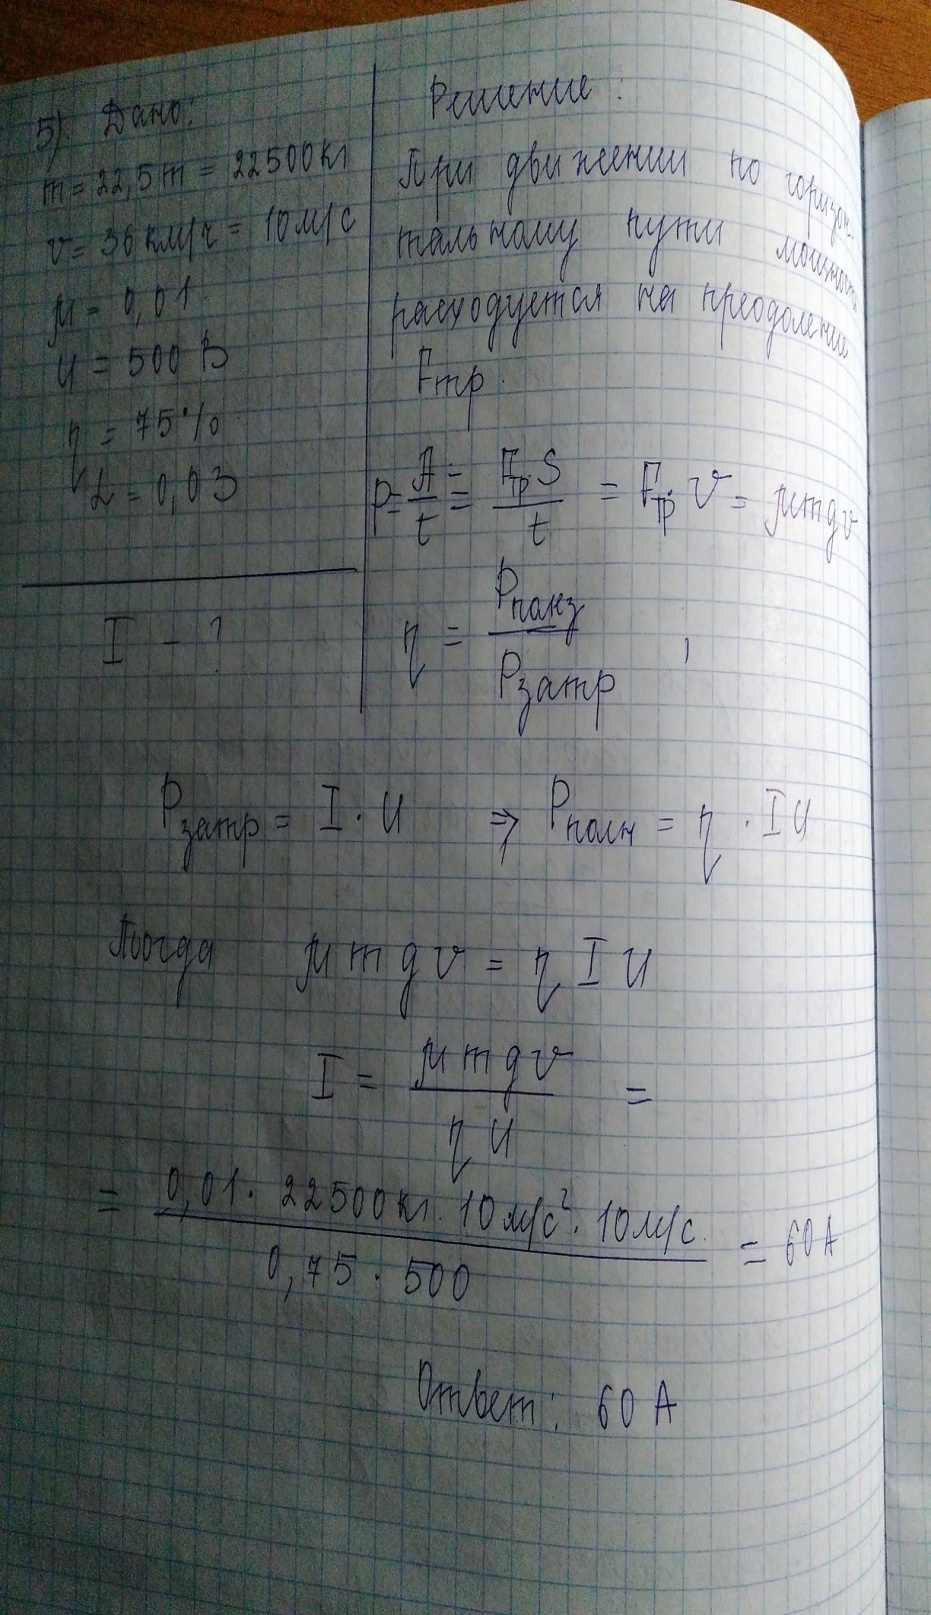 5) Дано:
m = 22,5 т = 22500 кг
v = 36 км/ч = 10 м/с
μ = 0,01
U = 500 В
η = 75%
α = 0,03
I - ?
Решение:
При движении по горизон-
тальному пути мощность
расходуется на преодоление
Fтр.
P = A/t = FтрS/t = Fтр v = μmgv
η = Pполез/Pзатр ,
Pзатр = I · U ⇒ Pполн = η · IU
Тогда μmgv = ηIU
I = μmgv/ηU =
= 0,01 · 22500 кг · 10 м/с² · 10 м/с / 0,75 · 500 = 60 А
Ответ: 60 А